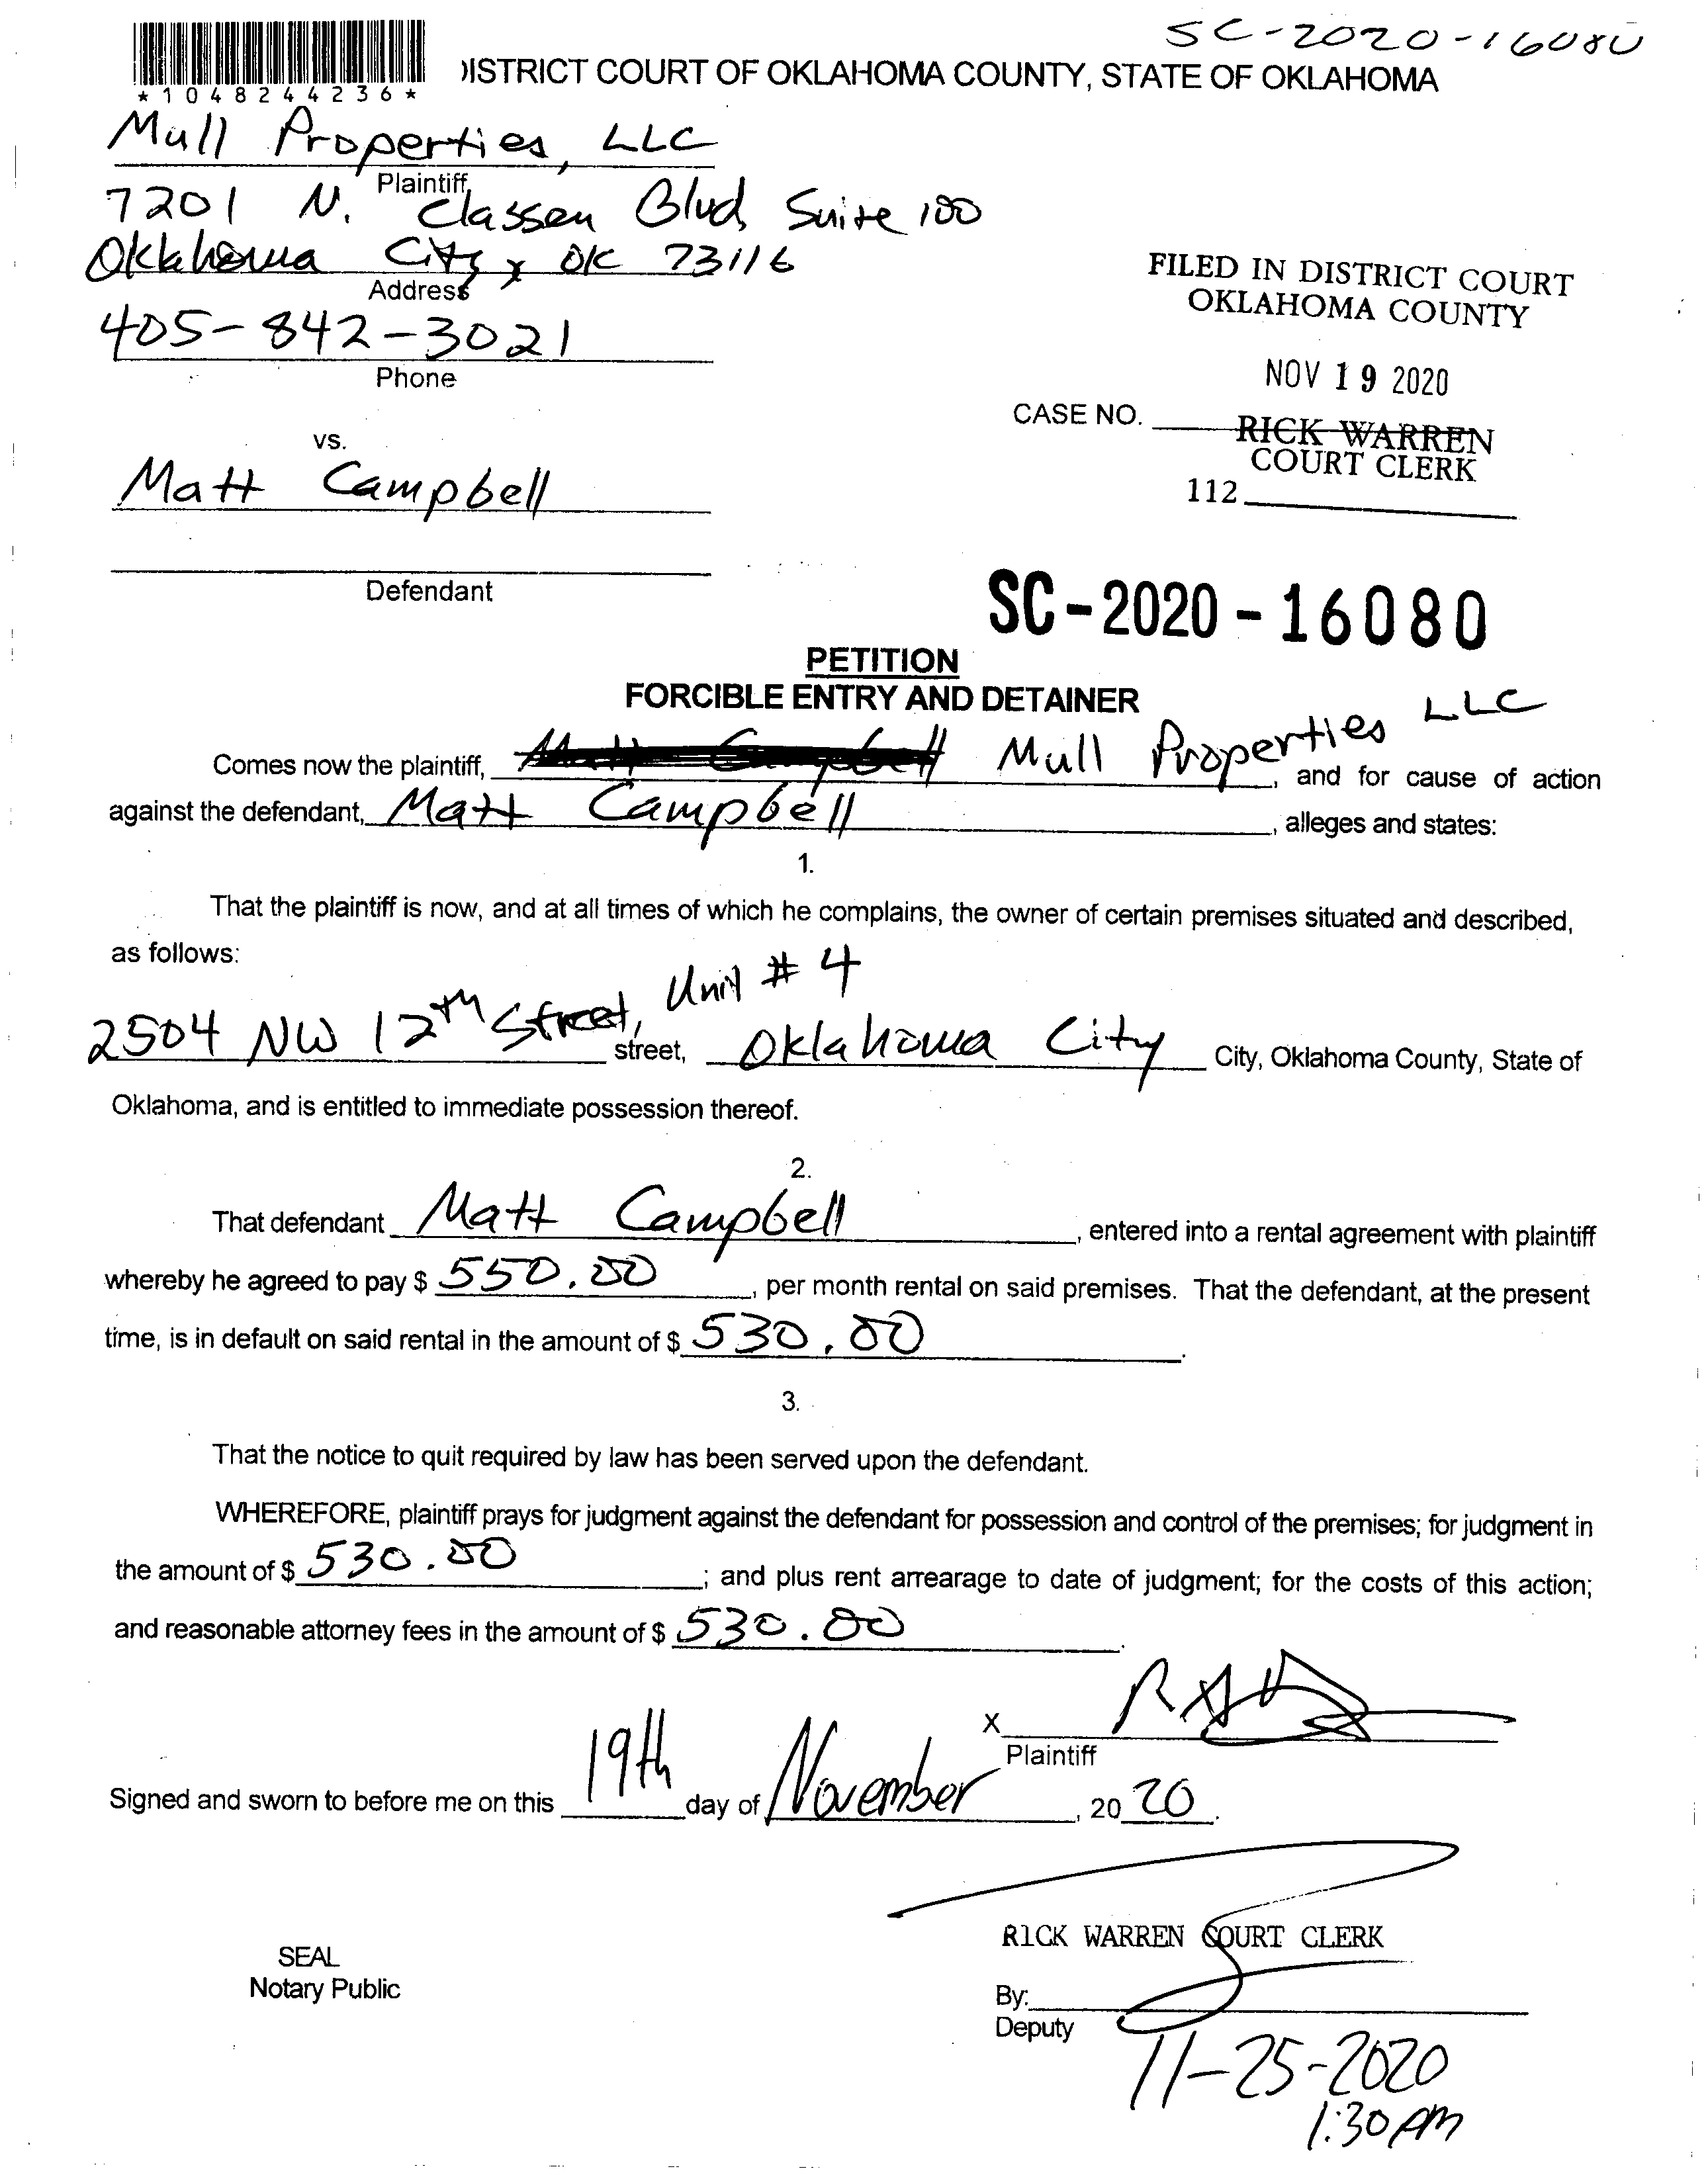 SC-2020-16080
*1048244236*
)ISTRICT COURT OF OKLAHOMA COUNTY, STATE OF OKLAHOMA
Mull Properties, LLC
Plaintiff
7201 N. Classen Blvd, Suite 100
Oklahoma City, OK 73116
Address
405-842-3021
Phone
FILED IN DISTRICT COURT
OKLAHOMA COUNTY
NOV 19 2020
CASE NO.
RICK WARREN
COURT CLERK
112
vs.
Matt Campbell
Defendant
SC-2020-16080
PETITION
FORCIBLE ENTRY AND DETAINER
Comes now the plaintiff, Matt Campbell Mull Properties LLC, and for cause of action
against the defendant, Matt Campbell, alleges and states:
1.
That the plaintiff is now, and at all times of which he complains, the owner of certain premises situated and described,
as follows:
2504 NW 12th Street, Unit # 4 street, Oklahoma City City, Oklahoma County, State of
Oklahoma, and is entitled to immediate possession thereof.
2.
That defendant Matt Campbell, entered into a rental agreement with plaintiff
whereby he agreed to pay $ 550.00, per month rental on said premises. That the defendant, at the present
time, is in default on said rental in the amount of $ 530.00.
3.
That the notice to quit required by law has been served upon the defendant.
WHEREFORE, plaintiff prays for judgment against the defendant for possession and control of the premises; for judgment in
the amount of $ 530.00; and plus rent arrearage to date of judgment; for the costs of this action;
and reasonable attorney fees in the amount of $ 530.00.
X
Plaintiff
Signed and sworn to before me on this 19th day of November, 20 20.
RICK WARREN COURT CLERK
SEAL
Notary Public
By:
Deputy
11-25-2020
1:30 PM